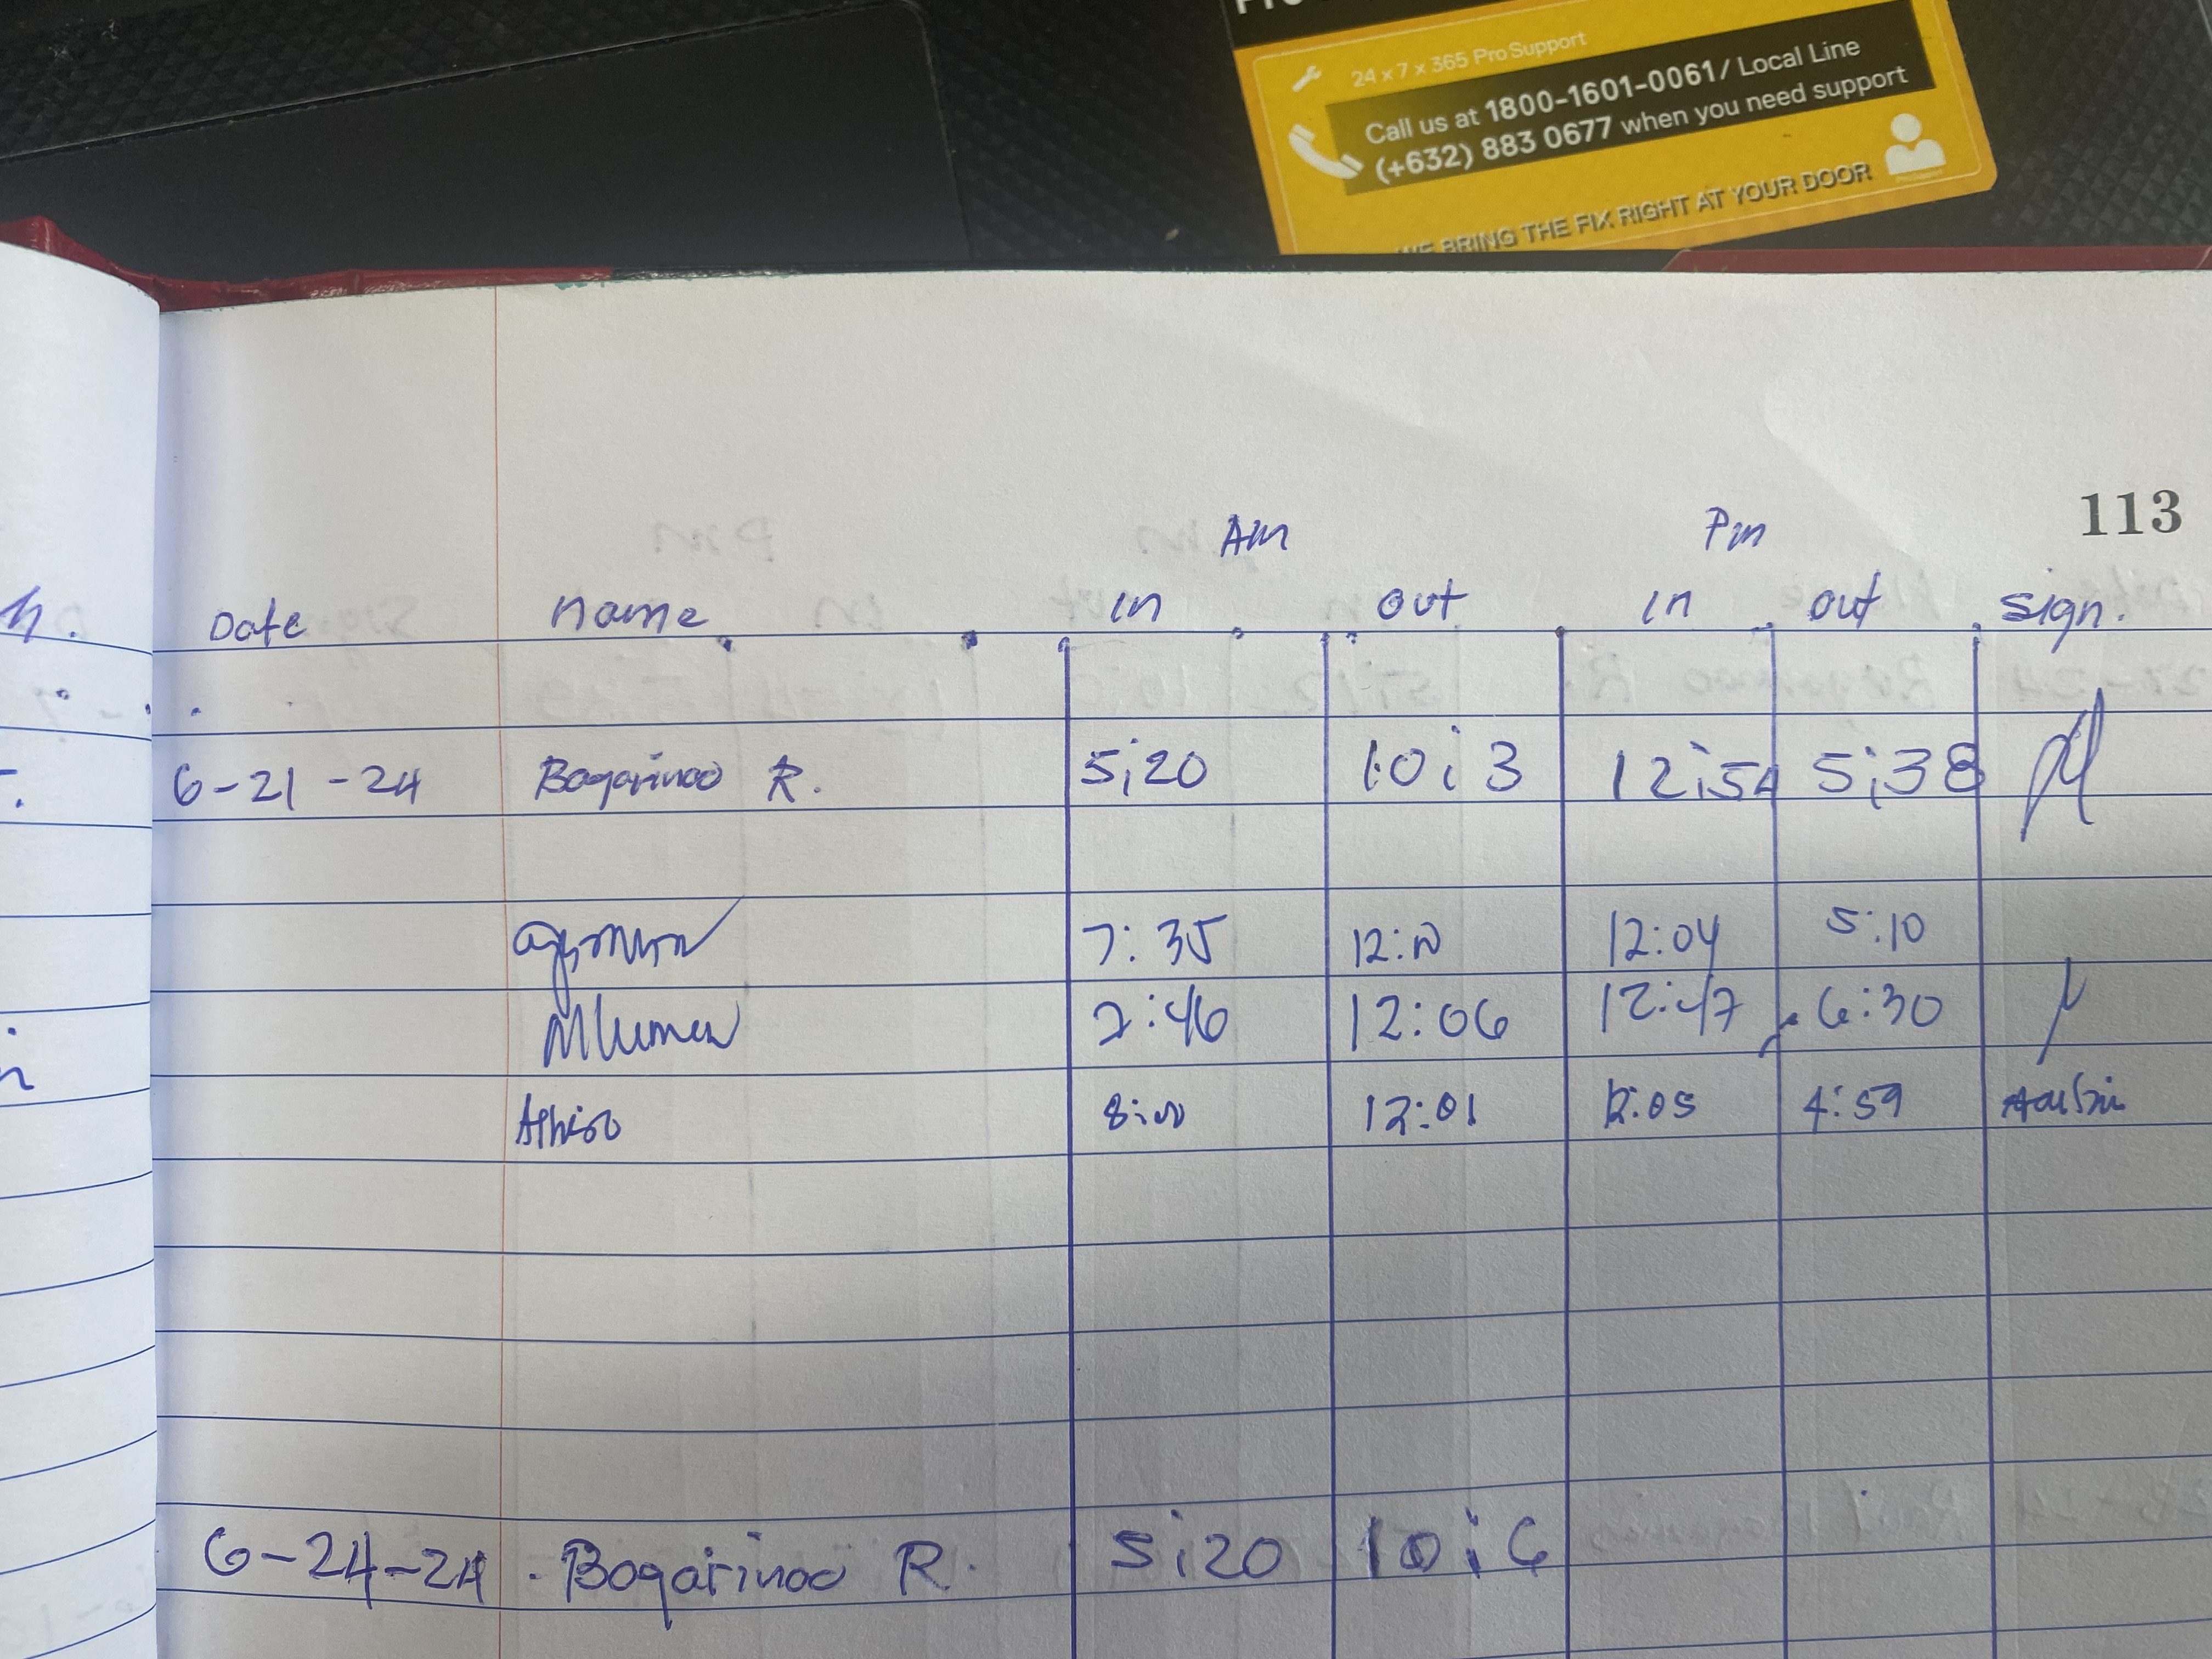 24 x 7 x 365 ProSupport
Call us at 1800-1601-0061/ Local Line
(+632) 883 0677 when you need support
WE BRING THE FIX RIGHT AT YOUR DOOR
113
Am Pm
Date Name In Out In Out Sign.
6-21-24 Bogarinao R. 5;20 10;3 12;54 5;38
7:35 12:00 12:04 5:10
7:46 12:06 12:47 6:30
8:00 12:01 12:05 4:59
6-24-24 . Bogarinao R. 5;20 10;6